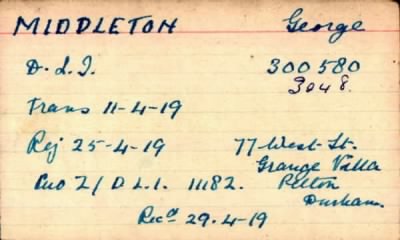 MIDDLETON George
D.L.I. 300580
3048.
Trans 11-4-19
Rej 25-4-19 77 West St.
Grange Villa
2/D.L.I. 11182. Pelton
Durham.
Recd 29.4-19